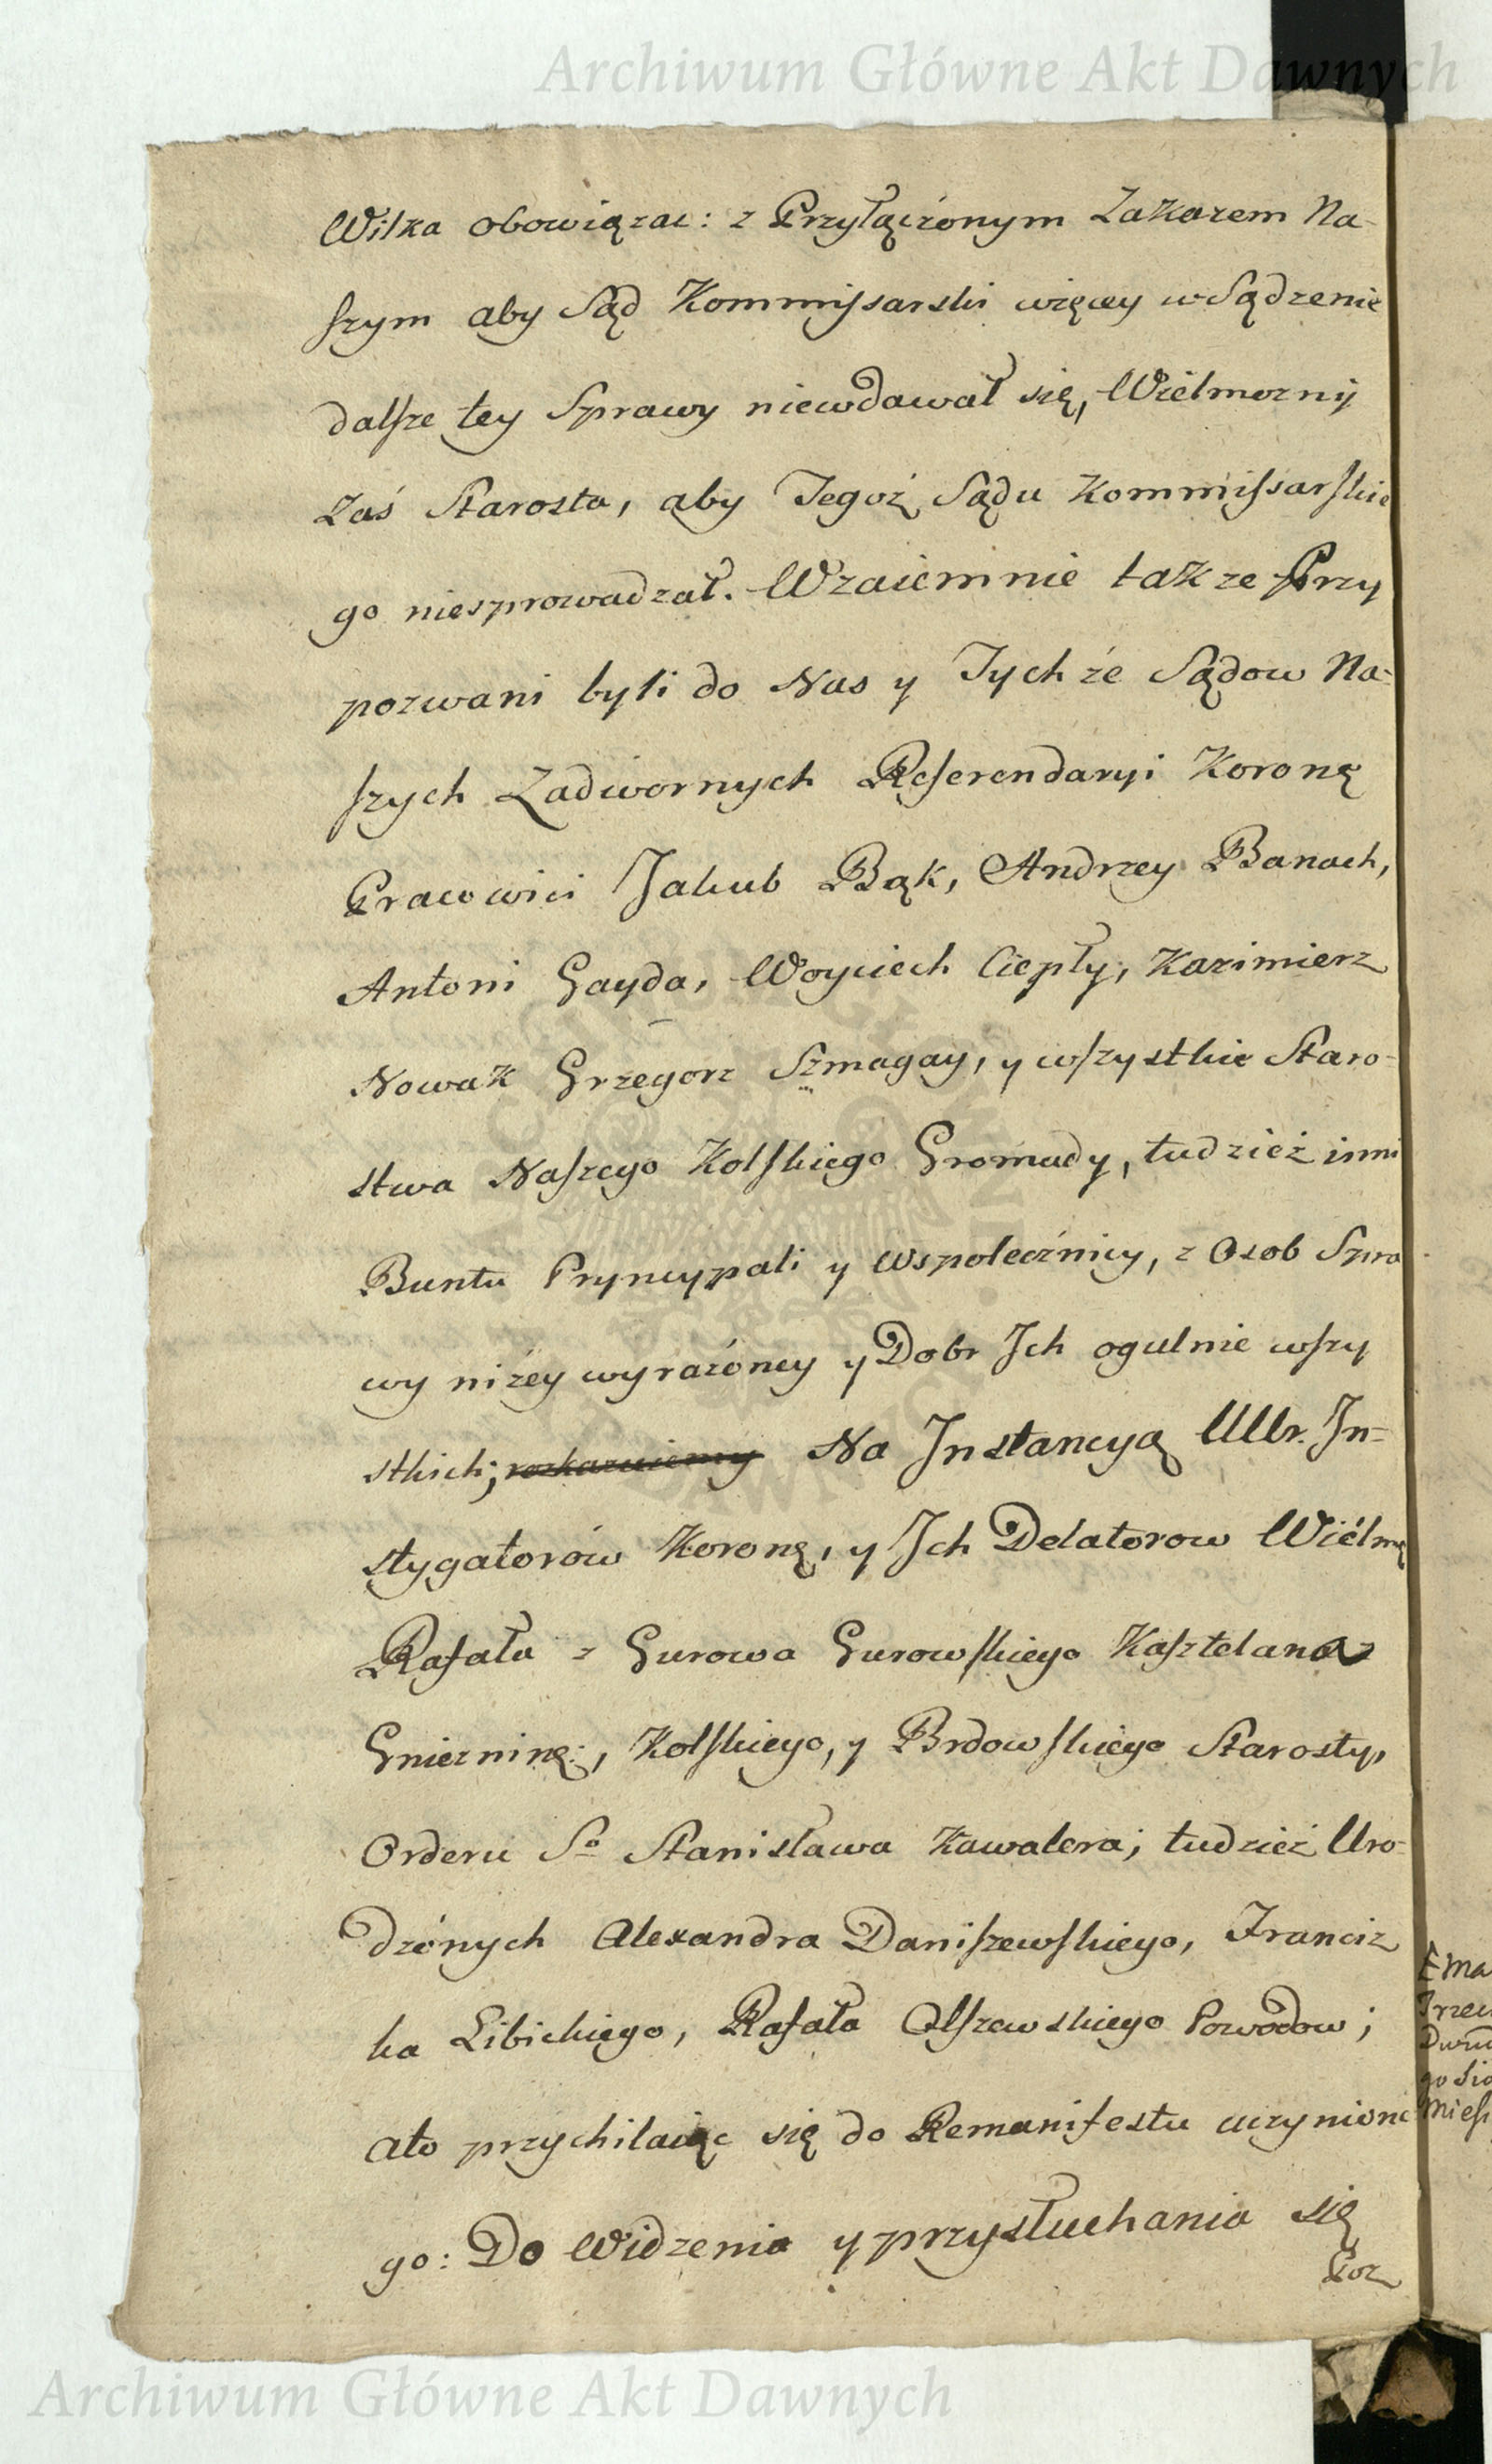 Archiwum Główne Akt Dawnych
Wilka obowiązac: z Przyłączonym Zakazem Na-
szym aby Sąd Kommissarski więcey w Sądzenie
dalsze tey Sprawy niewdawał się, Wielmozny
Zaś Starosta, aby Tegoż Sądu Kommissarskie
go niesprowadzał. Wzaiemnie takze Przy
pozwani byli do Nas y Tychże Sądow Na-
szych Zadwornych Referendaryi Koronę
Pracowici Jakub Bąk, Andrzey Banach,
Antoni Gayda, Woyciech Ciepły, Kazimierz
Nowak Grzegorz Szmagay, y wszystkie Staro-
stwa Naszego Kolskiego Gromady, tudzież inni
Buntu Pryncypali y wspolecżnicy, z Osob Spra
wy niżey wyrażoney y Dobr Jch ogulnie wszy
stkich; rozkazuiemy Na Jnstancyą UUr. Jn-
stygatorów Koronę, y Jch Delatorow Wielmę
Rafała z Gurowa Gurowskiego Kasztelana
Gniezninę:, Kolskiego, y Brdowskiego Starosty,
Orderu So Stanisława Kawalera; tudzież Uro-
dzónych Alexandra Daniszewskiego, Francisz
ka Libickiego, Rafała Olszewskiego Powodow;
Ato przychilaiąc się do Remanifestu uczynione
go: Do Widzenia y przysłuchania się
Poz
Archiwum Główne Akt Dawnych